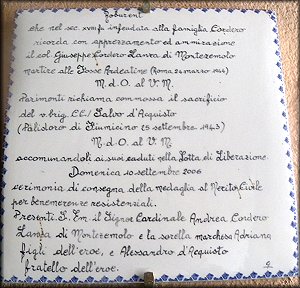 Joburent
che nel sec. XVIII fu infeudata alla famiglia Cordero
ricorda con apprezzamento ed ammirazione
il col. Giuseppe Cordero Lanza di Montezemolo
martire alle Fosse Ardeatine (Roma 24 marzo 1944)
M.d.O. al V.M.
Parimonti richiama commossa il sacrificio
del v. brig. CC. Salvo d'Acquisto
(Palidoro di Fiumicino 23 settembre 1943)
M.d.O. al V.M.
accomunandoli ai suoi caduti nella Lotta di Liberazione
Domenica 10 settembre 2006
cerimonia di consegna della medaglia al Merito Civile
per benemerenze resistenziali.
Presenti S. Em. il Signor Cardinale Andrea Cordero
Lanza di Montezemolo e la sorella marchesa Adriana
figli dell'eroe, e Alessandro d'Acquisto
fratello dell'eroe.